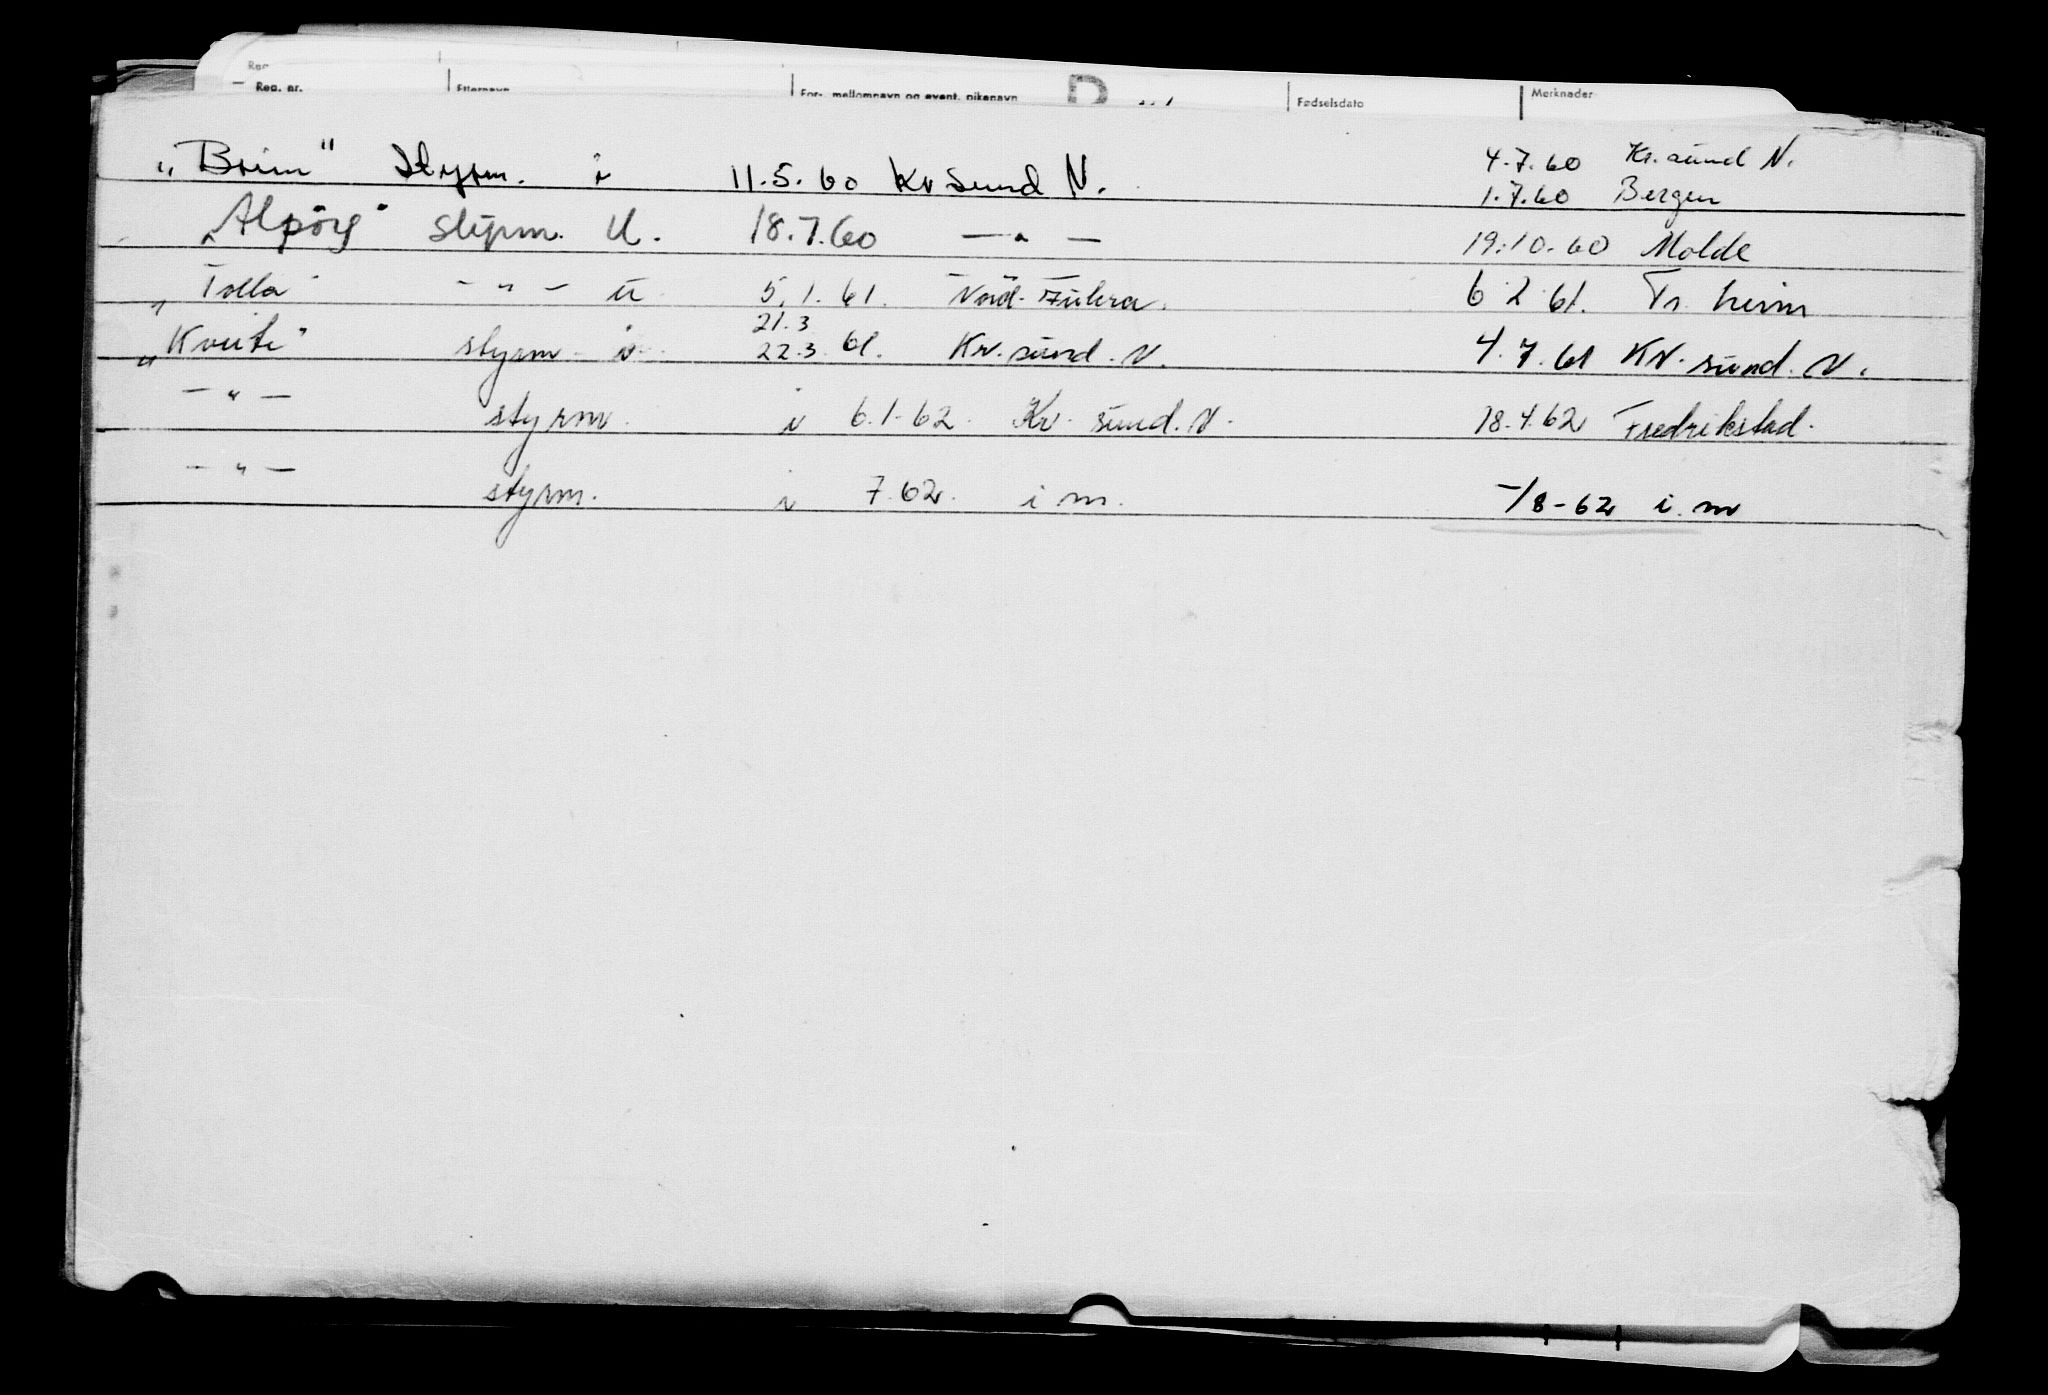 Reg. nr. Etternavn For-, mellomnavn og event. pikenavn Fødselsdato Merknader
„Brim" Styrm. i 11.5.60 Kr Sund N. 4.7.60 Kr. sund N.
1.7.60 Bergen
„Alpöy" styrm. U. 18.7.60 — " — 19.10.60 Molde
„Tolla" - " - U 5.1.61. Nord-Fuhra. 6.2.61. Tr. heim
21.3
„Kveite" styrm i 22.3.61. Kr. sund. N. 4.7.61 Kr. sund. N.
— " — styrm. i 6.1-62. Kr. sund. N. 18.4.62 Fredrikstad.
— " — styrm. i 7.62. i m. -/8-62 i. m